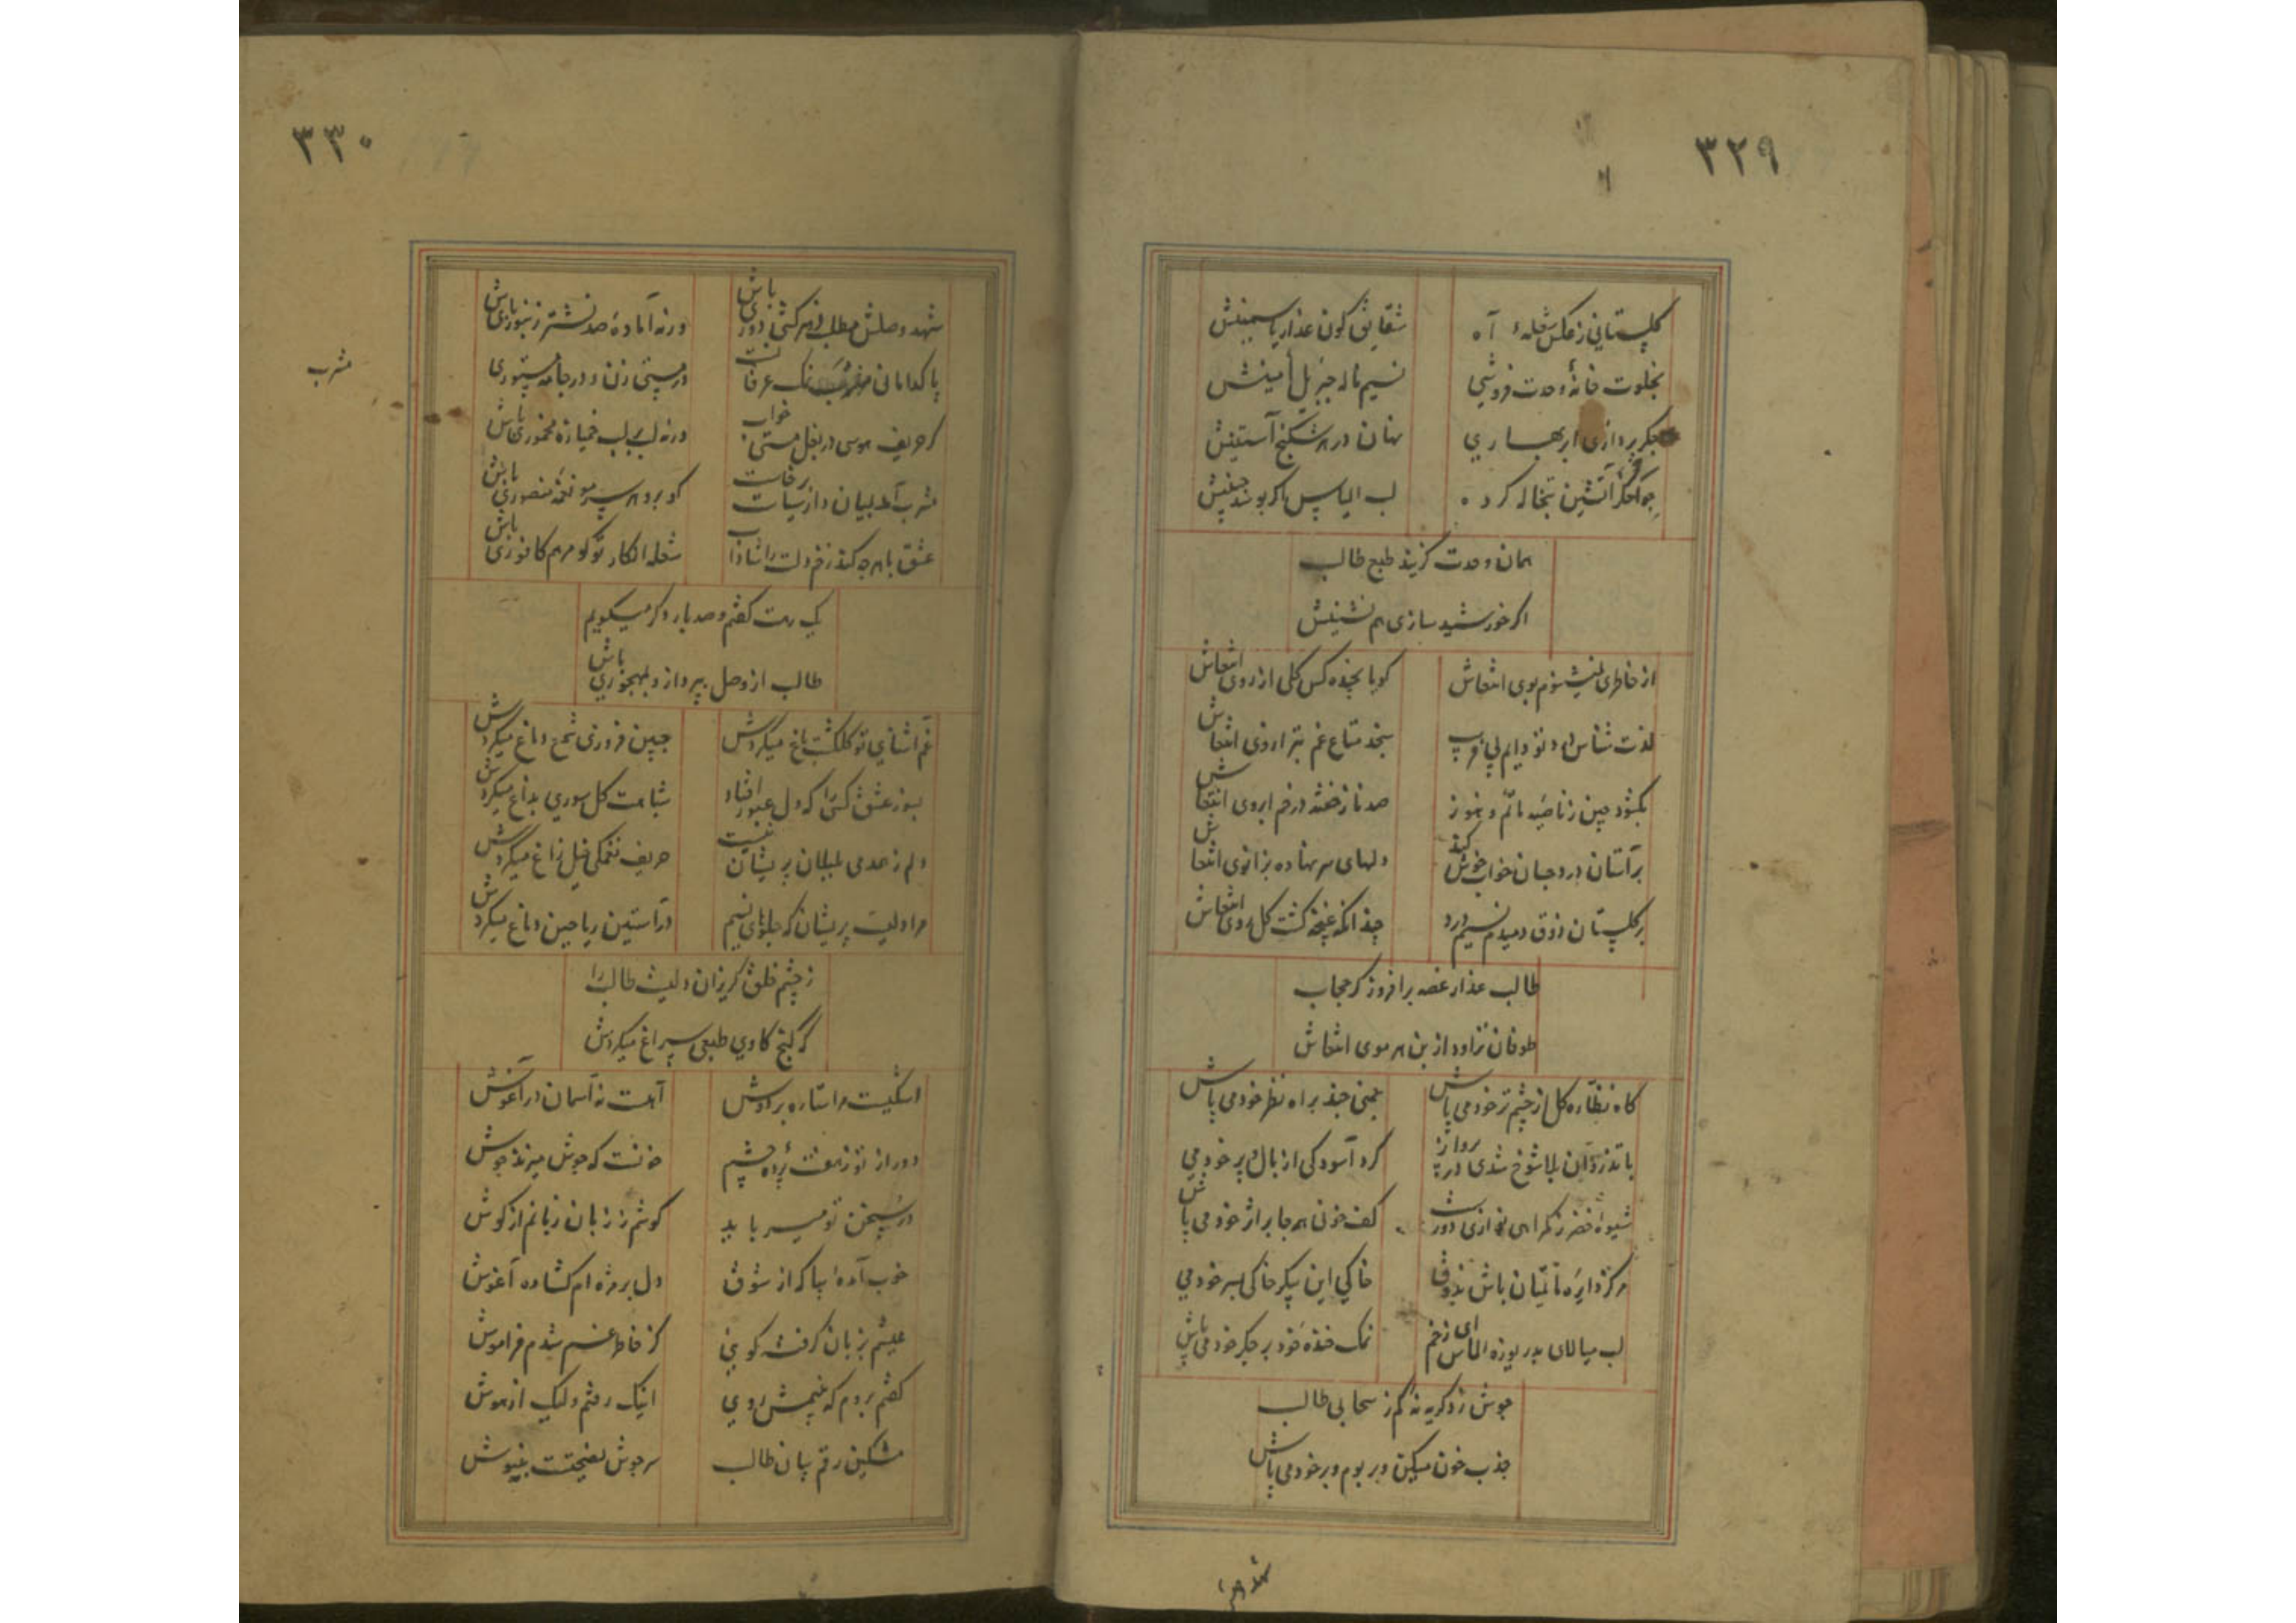 ٣٢٩
گلستانی ز عکس شعلهٔ آه
شقایق گون عذار یاسمینش
بخلوت خانهٔ وحدت فروشی
نسیم ناله جبریل امینش
جگر پردازی ابر بهاری
نهان در هر شکنج آستینش
آتشین تبخاله کرد
لب الیاس اگر بوسد
همان وحدت گزیند طبع طالب
اگر خورشید سازی هم نشینش
از خاطری نمیشنوم بوی انتعاش
گویا نچیده کس گلی از روی انتعاش
لذت شناس
سنجد متاع غم بترازوی انتعاش
نگشود چین ز ناصیه ماتم و هنوز
صد ناز خفته در خم ابروی انتعاش
بر آستان درد جهان خواب خوش کند
دلهای سر نهاده بزانوی انتعاش
بر گلستان ذوق دمیدم نسیم درد
چندانکه غنچه گشت گل روی انتعاش
طالب عذار غصه برافروز کز حجاب
طوفان تراود از بن هر موی انتعاش
گاه نظاره گل از چشم تر خود می پاش
چمنی چند براه نظر خود می پاش
با تذروان بلا شوخ شدی در پرواز
گرد آسودگی از بال و پر خود می
شیوهٔ خضر ز گمراهی نوازی دورست
کف خونی همه جا بر اثر خود می پاش
مرکز دایره ماتمیان باش بذوق
خاکی این پیکر خاکی بسر خود می
لب میالای بدریوزه الماس ای زخم
نمک خنده خود بر جگر خود می پاش
جوش زد گریه نه کم ز سحابی طالب
جذب خون میکن و بر بوم و بر خود می پاش
شهد و صلش
٣٣٠
شهد وصلش مطلب دور باش
ورنه آمادهٔ صد نشتر زنبوری باش
پاکدامانی مشرب ننگ عرفانست
در مستی زن و در جامه مستوری
گر حریف هوسی در بغل مستی خواب
ورنه لب بر لب خمیازه مخموری باش
مشرب
گو برو هر سر مو نغمه منصوری باش
عشق با هر چه کند زخم دلت را شاداب
شعله انکار تو گو مرهم کافوری باش
یک رهت گفتم و صد بار دگر میگویم
طالب از وصل بپرداز و بمهجوری باش
غم آشنای تو گلگشت باغ میکردش
جبین فروزی شمع دماغ میکردش
بسوز عشق کسی را که دل عبور افتاد
شباهت گل سوری بداغ میکردش
دلم ز همدمی بلبلان پریشان نیست
حریف نغمگی خیل زاغ میکردش
مرا دلیست پریشان که جلوهای نسیم
در آستین ریاحین دماغ میکردش
ز چشم خلق گریزان دلیست طالب را
که کنج کاوی طبعی سراغ میکردش
اشکیست مرا ستاره بر دوش
آهست نه آسمان در آغوش
دور از تو ز هفت پرده چشم
خونست که جوش میزند جوش
در سخن تو میرباید
گوشم ز زبان زبانم از گوش
خوب آمدهٔ بیا که از شوق
دل بر مژه ام گشاده آغوش
عیشم بزبان گرفت گویی
کز خاطر غم شدم فراموش
گفتم بروم که بینمش روی
اینک رفتم ولیک از هوش
مشکین رقم بیان طالب
سر جوش نصیحتت بنیوش